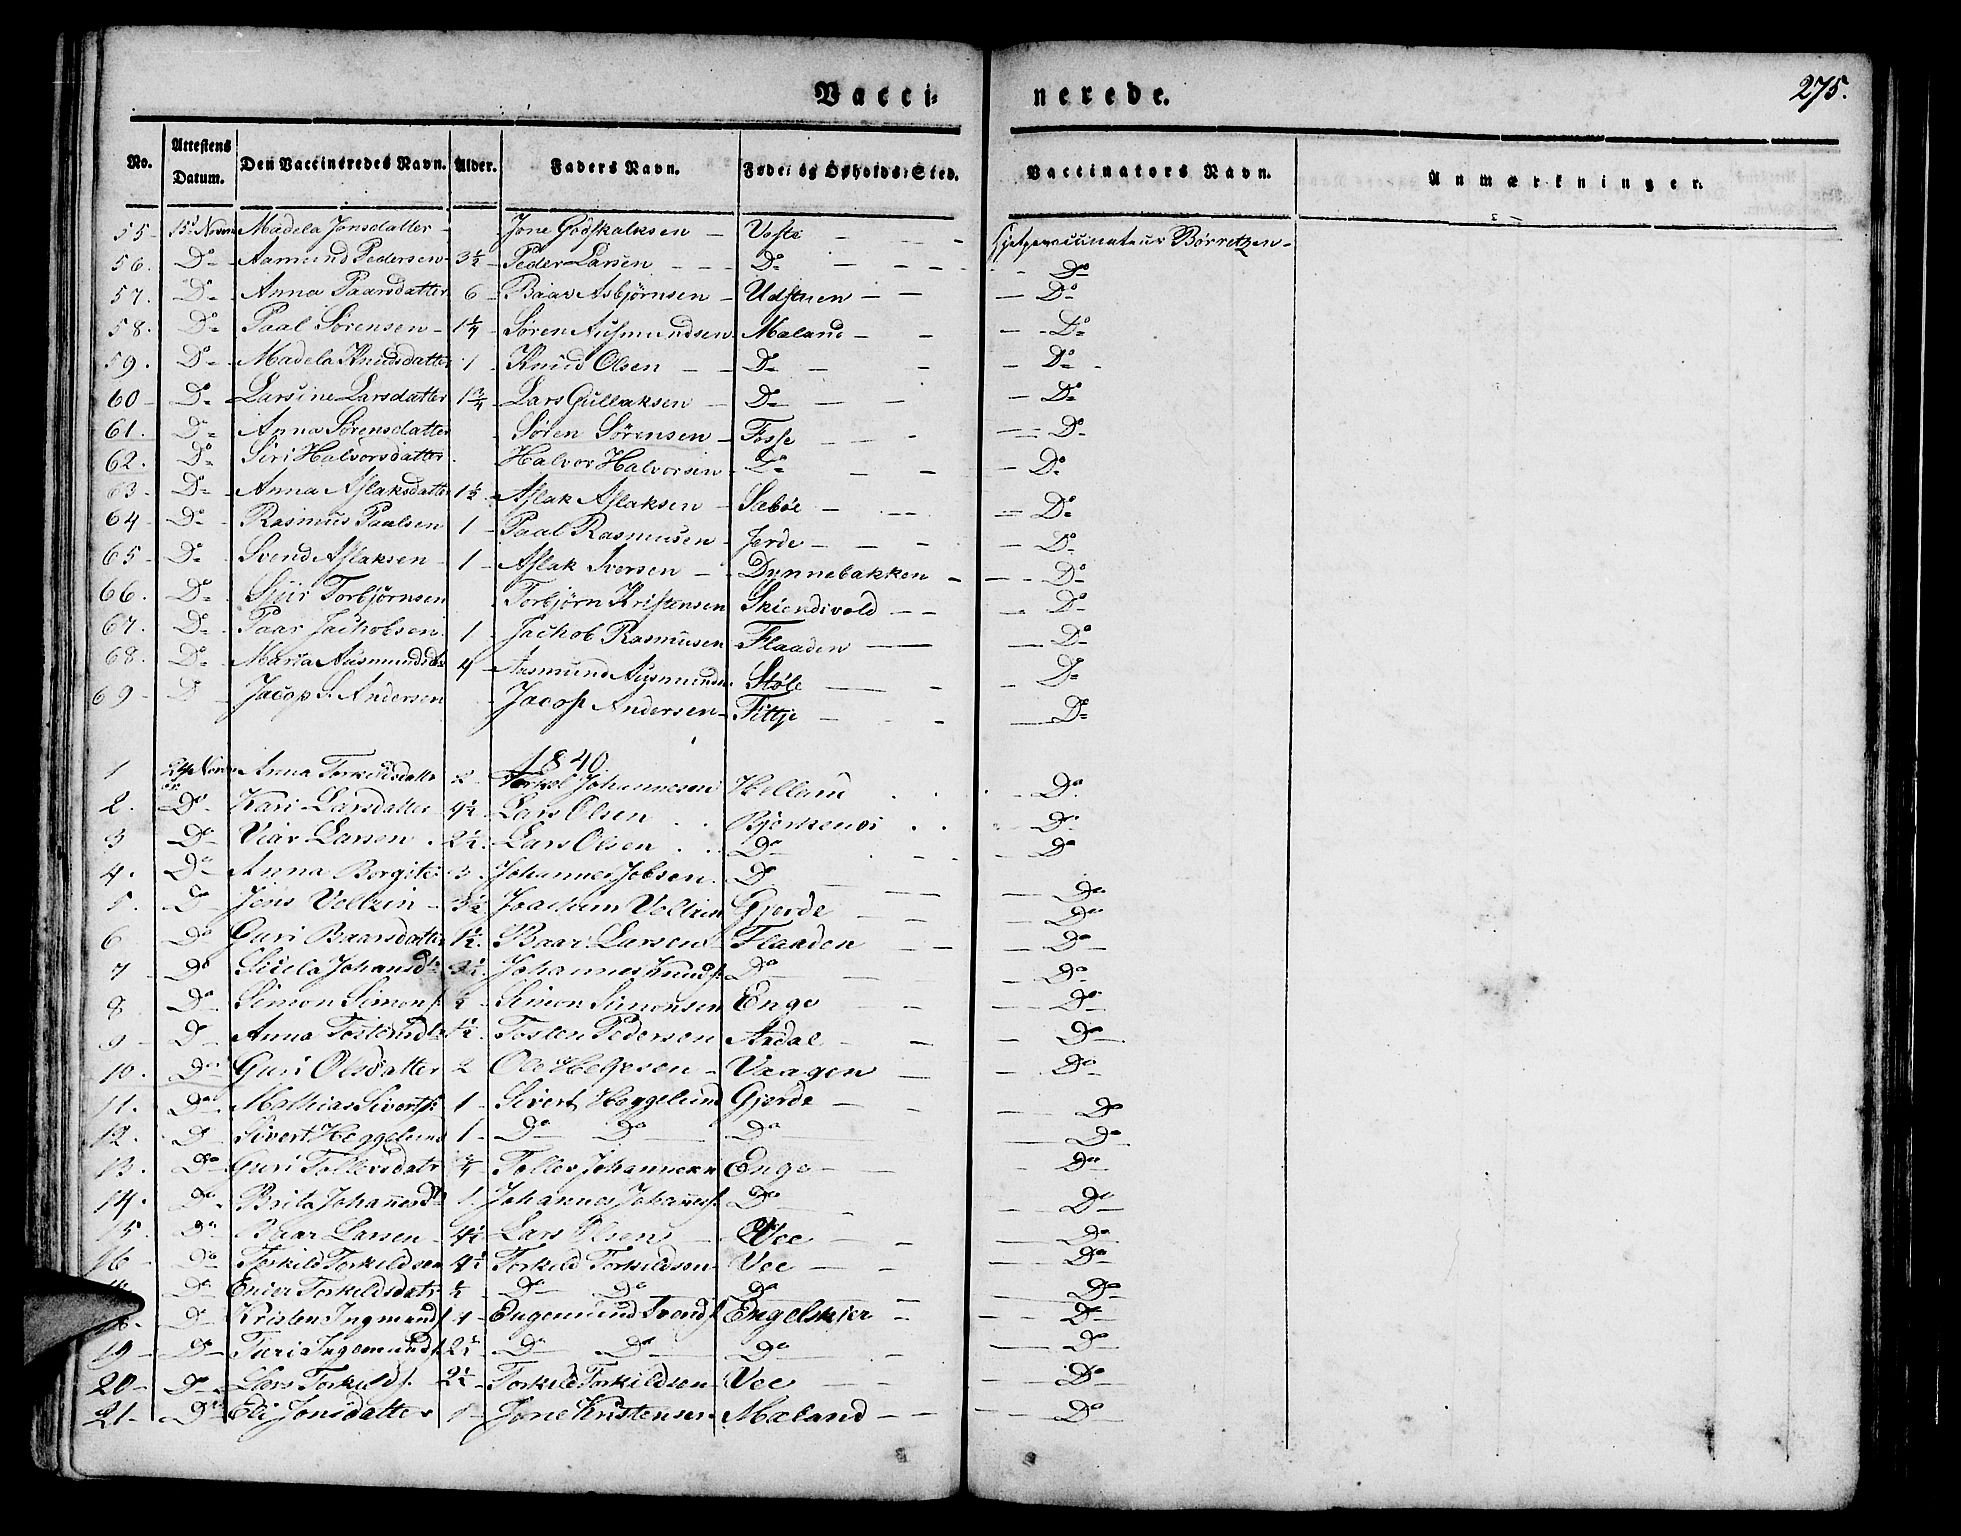 Vacci- nerede. 275.
No. Attestens Datum. Den Vaccineredes Navn. Alder. Faders Navn. Føde- og Opholds-Sted. Vaccinators Navn. Anmærkninger.
55- 15 Novem Madela Jonsdatter - Jone Godskalksen - -
56. Do- Aamund Pedersen- 3½- Peder Larsen - - - Do - - - - Do
57. Do- Anna Paarsdatter 6- Baar Asbjørnsen- Udstuen - - - Do-
58. Do- Paal Sørensen- 1¼- Søren Aasmundsen Mæland- - - Do-
59. Do- Madela Knudsdatter 1- Knud Olsen - - Do- - - - Do-
60- Do- Larsine Larsdatter 1¾- Lars Gullaksen - Do- - - - Do-
61. Do- Anna Sørensdatter Søren Sørensen- Fosse - - - Do-
62. Do Siri Halvorsdatter Halvor Halvorsen- Do- - - - Do-
63- Do- Anna Aslaksdatter 1½- Aslak Aslaksen- Sæbøe - - - Do-
64- Do- Rasmus Paalsen 1- Paal Rasmusen- - - - - Do-
65- Do- Svend Aslaksen- 1- Aslak Iversen - Dynnebakken- - - Do-
66. Do- Torbjørnsen Torbjørn Kristensen Skiendivold - - - Do-
67. Do- Paar Jachobsen 1- Jachob Rasmusen Flaaden - - - Do-
68. Do- Maria 4- Støle - - - Do-
69- D Jacop S. Andersen Jacop Andersen- Fittje - - - Do-
1840
1 24 Novem Anna Torkildsdatter 2- Johannesen Helland - Do
2. Do Kari Larsdatter 4½- Lars Olsen - Do
3 Do Viar Larsen . 2½. Lars Olsen . . Do - Do
4. Do- Anna Borgite 3. Johannes Jobsen. D - Do
5. Do Jens Voltzin - 3½ Joachim Voltzin Gjerde - - Do
6 Do Guri Baarsdatter 1½. Baar Larsen Flaaden - - Do
7 - Do Johansd. Johannes Knuds. Do - - Do
8. Do Simon Simons. Simon Simonsen Enge - - Do
9 - D Anna Tostensd. 1½. Tosten Pedersen Ardal - - - Do
10. Do Guri Olsdatter 2 Ole Helgesen - Vaagen - - Do
11. Do Mathias Siverts. 1- Sivert Heggelund Gjerde - - - Do
12. D Sivert Heggelund 1- Do Do Do - Do
13. Do Guri Tollevsdatr Tollev Johannesen Enge- - - Do
14. Do Brita Johannesd. 1. Johannes Johanness. Do - - Do
15. Do Baar Larsen - 4½ Lars Olsen - Vee - - - Do
16 - Do Torkild Torkildsen 4½ Torkild Torkildsen Vee - - - Do
Do Torkildsdatr ½ Do Do Do - - Do
18- D Kristen Ingmunds. 1- Engemund Svends. Engelskjer - - - Do
19 - D Turi Ingemunds. 2½ D Do Do - - Do
20- D- Lars Torkilds. 2½- Torkild Torkildsen Vee - - - Do
21- D Eli Jonsdatter Jone Kristensen Mæland - - - Do